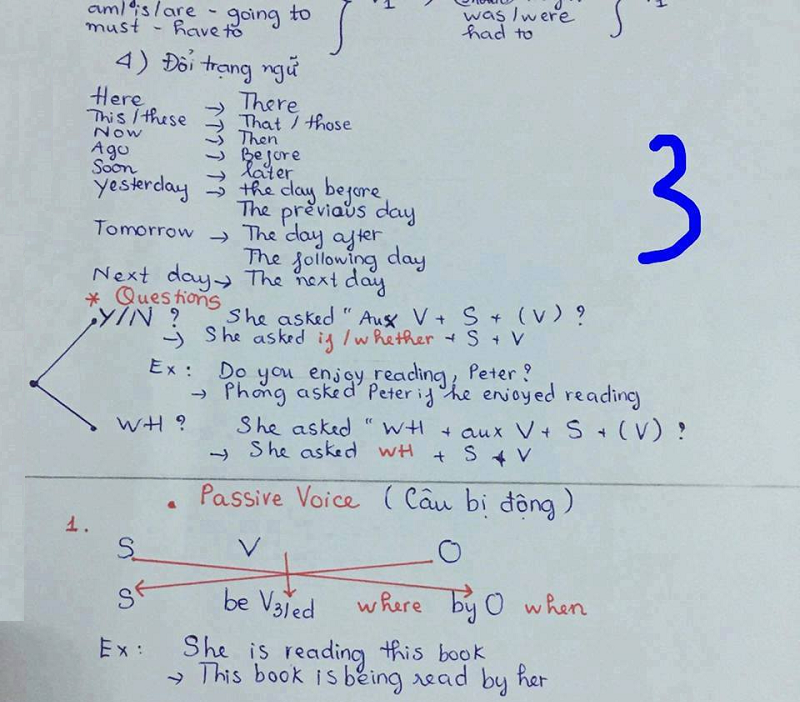 am/is/are - going to
must - have to
was/were
had to
4) Đổi trạng ngữ
Here → There
This/these → That/those
Now → Then
Ago → Before
Soon → later
Yesterday → the day before
The previous day
Tomorrow → The day after
The following day
Next day → The next day
* Questions
Y/N ? She asked " Aux V + S + (V) ?
→ She asked if/whether + S + V
Ex : Do you enjoy reading, Peter?
→ Phong asked Peter if he enjoyed reading
WH ? She asked " WH + aux V + S + (V) ?
→ She asked WH + S + V
3
• Passive Voice (Câu bị động)
1.
S V O
S be V3/ed where by O when
Ex : She is reading this book
→ This book is being read by her